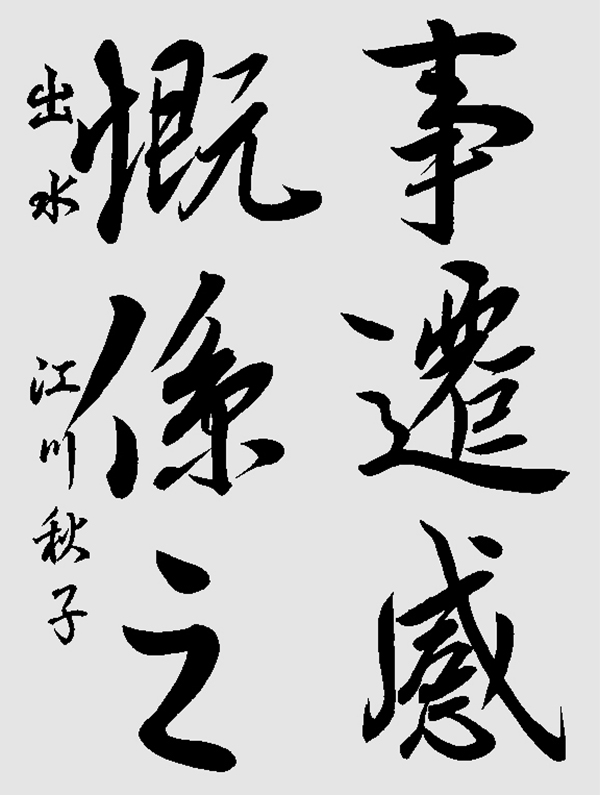 事遷感
慨係之
出水 江川秋子